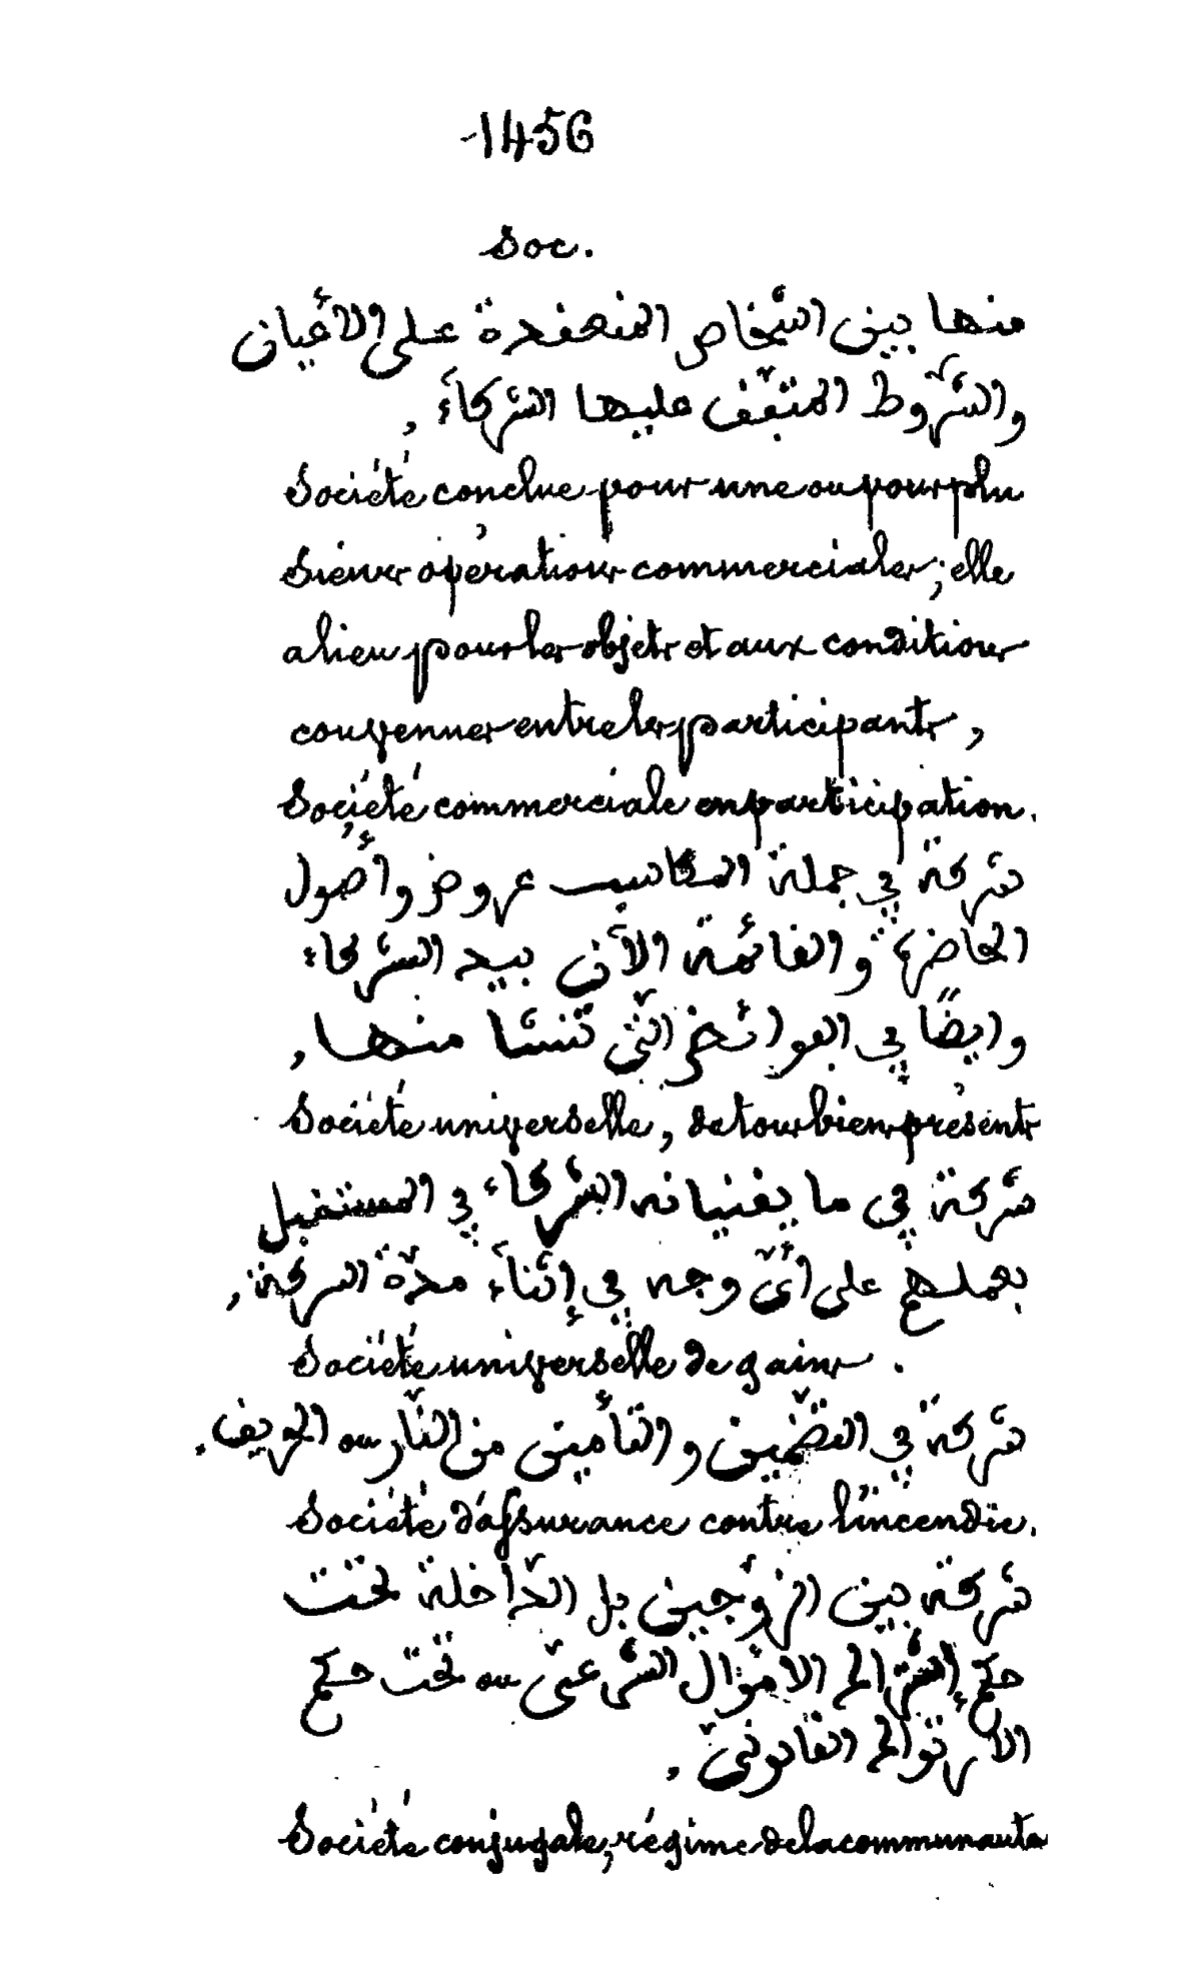 1456
Soc.
منها بين الشخاص المنعقدة على الأعيان
والشروط المتفّق عليها الشركاء,
Société conclue pour une ou pour plu
sieurs opérations commerciales; elle
a lieu pour les objets et aux conditions
convenues entre les participants,
Société commerciale en participation.
شركة في جملة المكاسب عروض وأصول
الحاضرة والقائمة الآن بيد الشركاء
وايضًا في العوائخر الّتي تنشا منها,
Société universelle, de tous biens présents
شركة في ما يقنيانه الشركاء في المستقبل
بعملهم على أيّ وجه في إثناء مدّة الشركة,
Société universelle de gains.
شركة في التضّمين والتأمين من النّار ou الحريف.
Société d'assurance contre l'incendie.
شركة بين الزوّجين بل الدّاخلة تحت
حكم إشتراك الاموال الشرعيّ ou تحت حكم
القانونيّ.
Société conjugale, régime de la communauté